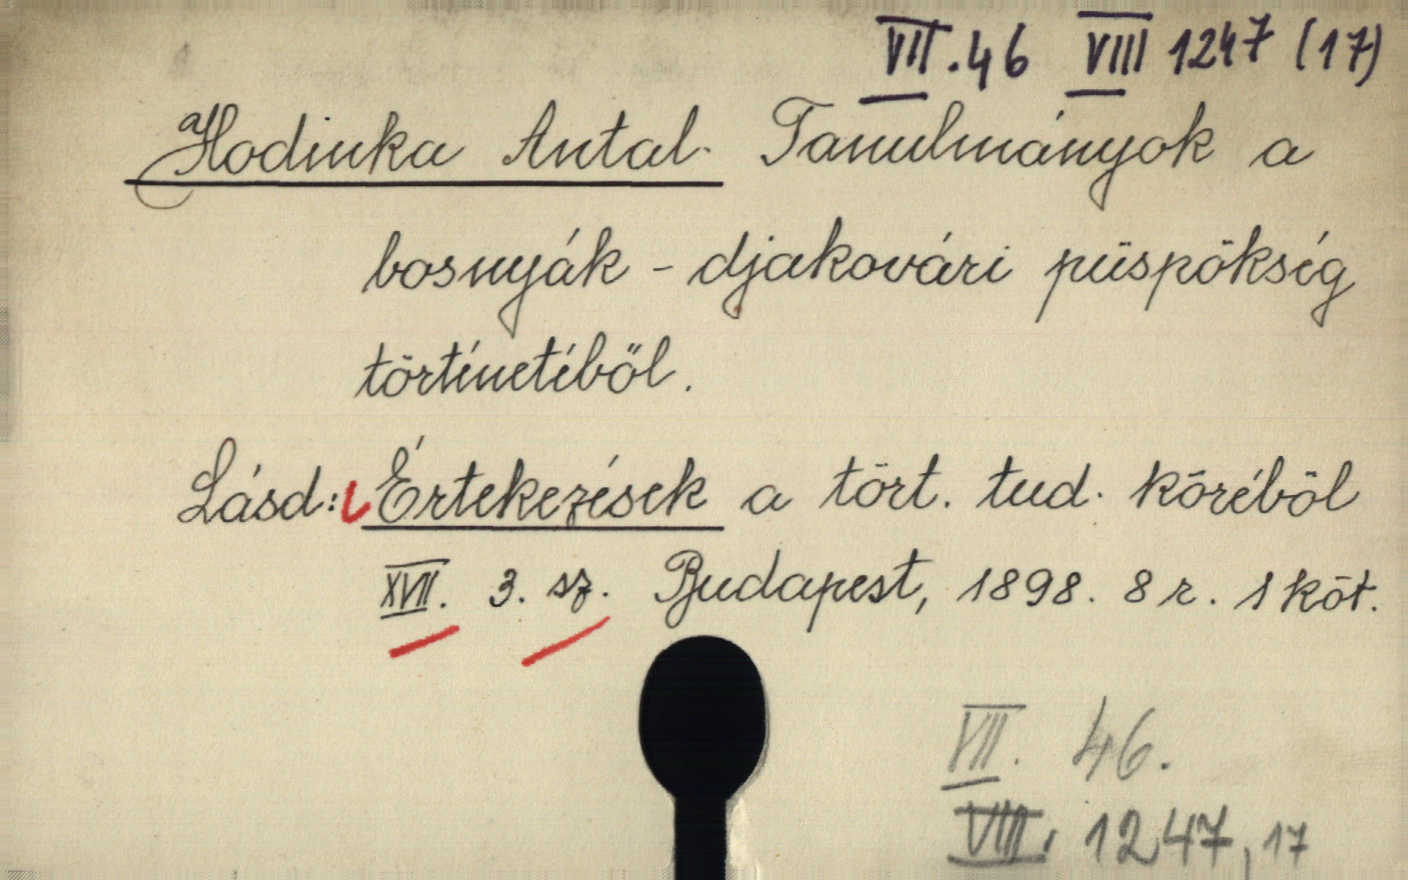 VII.46 VIII 1247 (17)
Hodinka Antal. Tanulmányok a
bosnyák - djakovári püspökség
történetéből.
Lásd: Értekezések a tört. tud. köréböl
XVII. 3. sz. Budapest, 1898. 8 r. 1 köt.
VII. 46.
VIII. 1247, 17